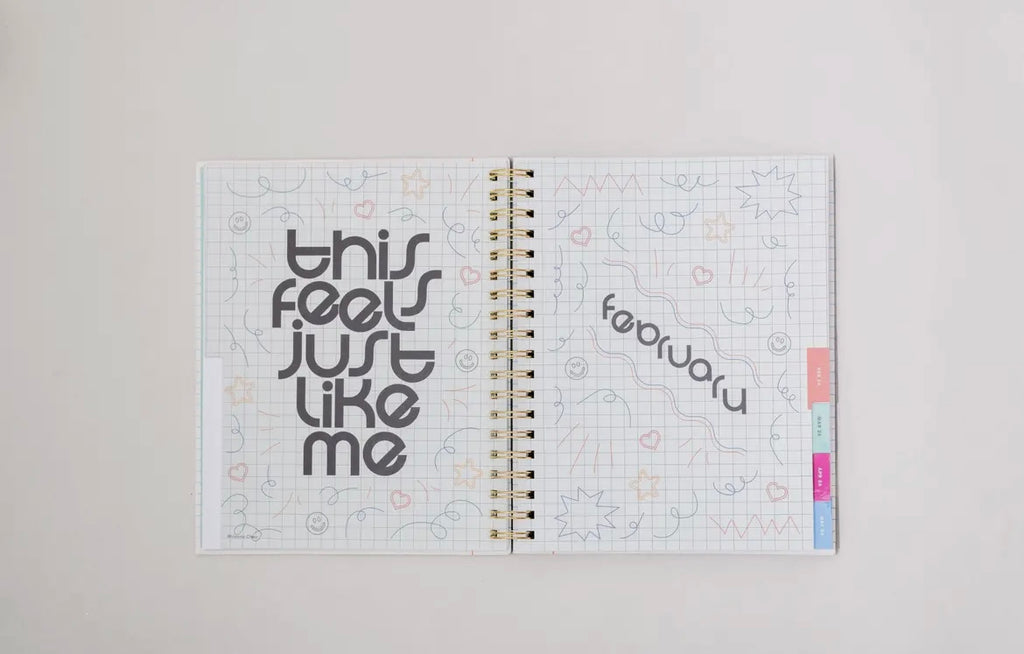 this
feels
just
like
me
february
FEB 24
MAR 24
APR 24